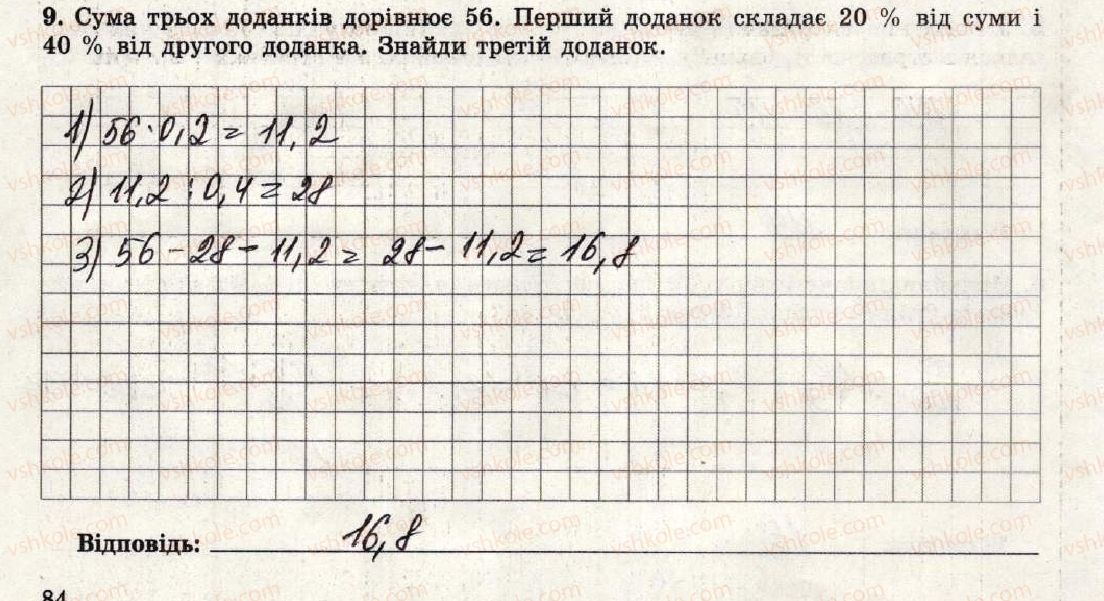 9. Сума трьох доданків дорівнює 56. Перший доданок складає 20 % від суми і
40 % від другого доданка. Знайди третій доданок.
1) 56 · 0,2 = 11,2
2) 11,2 : 0,4 = 28
3) 56 - 28 - 11,2 = 28 - 11,2 = 16,8
Відповідь: 16,8
84